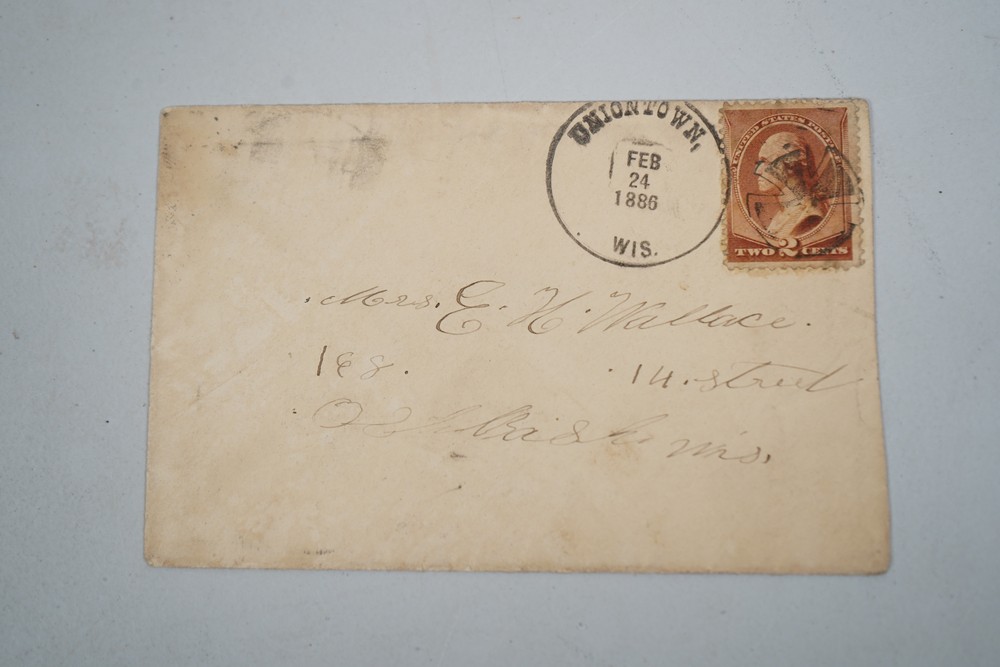 UNIONTOWN,
FEB
24
1886
WIS.
UNITED STATES POSTAGE
TWO 2 CENTS
Mrs. E. H. Wallace.
168. 14. street
Oshkosh wis.